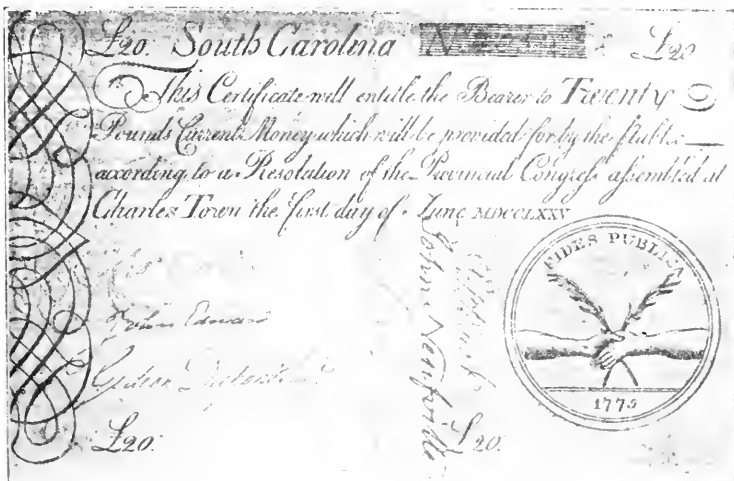 £20. South Carolina £20
This Certificate will entitle the Bearer to Twenty
Pounds Current Money which will be provided for by the Public
according to a Resolution of the Provincial Congress assembled at
Charles Town the first day of June MDCCLXXV
John Edwards
Gideon
John Neufville
FIDES PUBLICA
1775
£20.
£20.